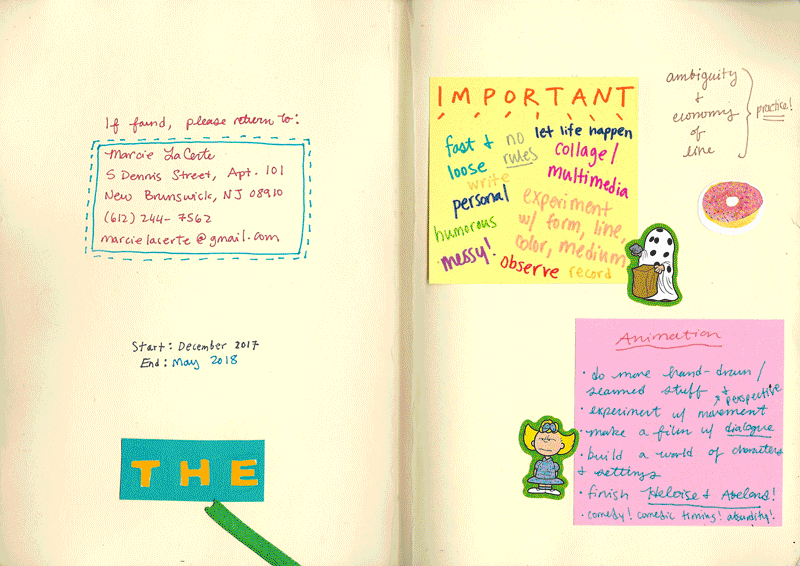 If found, please return to:
Marcie LaCerte
5 Dennis Street, Apt. 101
New Brunswick, NJ 08910
(612) 244-7562
marcielacerte@gmail.com
Start: December 2017
End: May 2018
THE
IMPORTANT
fast + loose
no rules
let life happen
collage/
multimedia
write
personal
experiment
w/ form, line,
color, medium
humorous
messy!
observe
record
ambiguity
+
economy
of
line
practice!
Animation
• do more hand-drawn/
scanned stuff + perspective
• experiment w/ movement
• make a film w/ dialogue
• build a world of characters
+ settings
• finish Heloise + Abelard!
• comedy! comedic timing! absurdity!